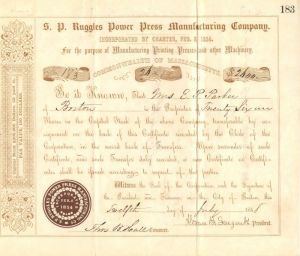 183
S. P. Ruggles Power Press Manufacturing Company.
INCORPORATED BY CHARTER, FEB. 8, 1854.
For the purpose of Manufacturing Printing Presses and other Machinery.
COMMONWEALTH OF MASSACHUSETTS.
183
26
$2600
Be it Known, That Mrs E. R. Parker
of Boston is the Proprietor of Twenty Six
Shares in the Capital Stock of the above Company, transferable by an
assignment on the back of this Certificate recorded by the Clerk of the
Corporation, in the record book of Transfers. Upon surrender of such
Certificate, and the Transfer duly recorded, a new Certificate or Certifi-
cates shall be issued accordingly to the assignee.
Witness the Seal of the Corporation and the Signature of
the President and Treasurer, in the City of Boston, this
Twelfth day of July
President.
Treasurer.
POWER PRESS MANUFACTURING
FEB. 8
1854